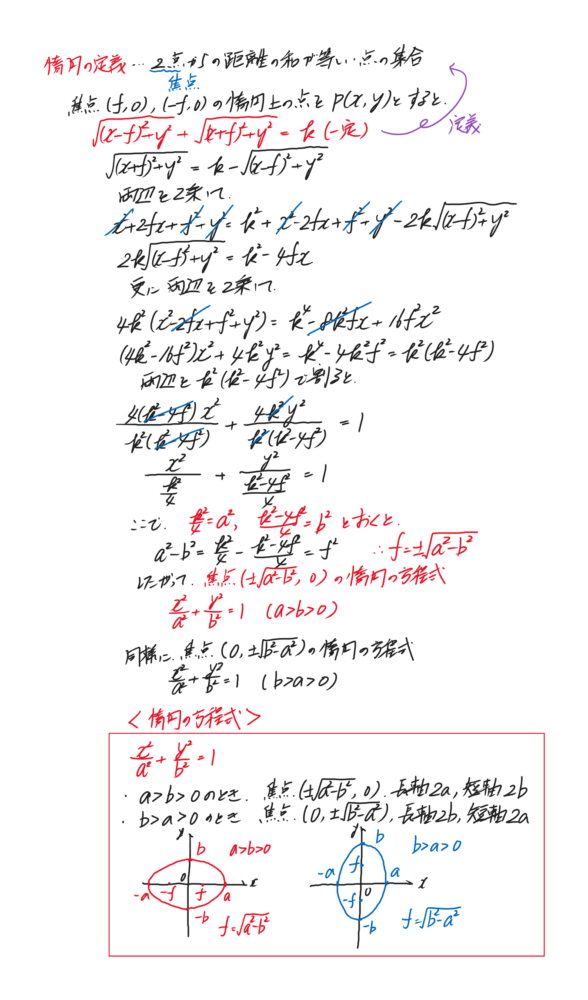 楕円の定義…2点からの距離の和が等しい点の集合
焦点
焦点(f,0),(-f,0)の楕円上の点をP(x,y)とすると、
√((x-f)²+y²) + √((x+f)²+y²) = k (一定)
定義
√((x+f)²+y²) = k - √((x-f)²+y²)
両辺を2乗して、
x²+2fx+f²+y² = k²+x²-2fx+f²+y²-2k√((x-f)²+y²)
2k√((x-f)²+y²) = k²-4fx
更に両辺を2乗して、
4k²(x²-2fx+f²+y²) = k⁴-8k²fx+16f²x²
(4k²-16f²)x²+4k²y² = k⁴-4k²f² = k²(k²-4f²)
両辺をk²(k²-4f²)で割ると、
4(k²-4f²)x²/k²(k²-4f²) + 4k²y²/k²(k²-4f²) = 1
x²/(k²/4) + y²/((k²-4f²)/4) = 1
ここで、k²/4=a², (k²-4f²)/4=b² とおくと、
a²-b² = k²/4 - (k²-4f²)/4 = f² ∴f=±√(a²-b²)
したがって、焦点(±√(a²-b²), 0)の楕円の方程式
x²/a² + y²/b² = 1 (a>b>0)
同様に、焦点(0, ±√(b²-a²))の楕円の方程式
x²/a² + y²/b² = 1 (b>a>0)
<楕円の方程式>
x²/a² + y²/b² = 1
・a>b>0のとき、焦点(±√(a²-b²), 0), 長軸2a, 短軸2b
・b>a>0のとき、焦点(0, ±√(b²-a²)), 長軸2b, 短軸2a
y b a>b>0
0 x
-a -f f a
-b f=√(a²-b²)
y b b>a>0
-a f a
0 x
-f
-b f=√(b²-a²)